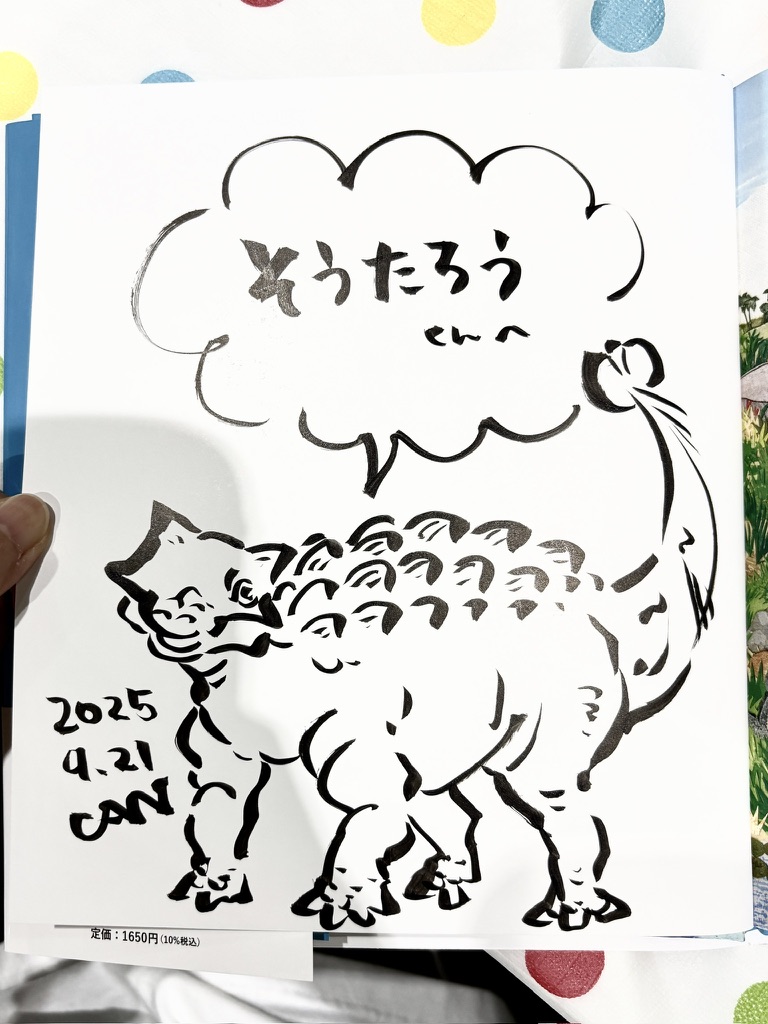 そうたろう
くんへ
2025
9.21
CAN
定価：1650円（10%税込）